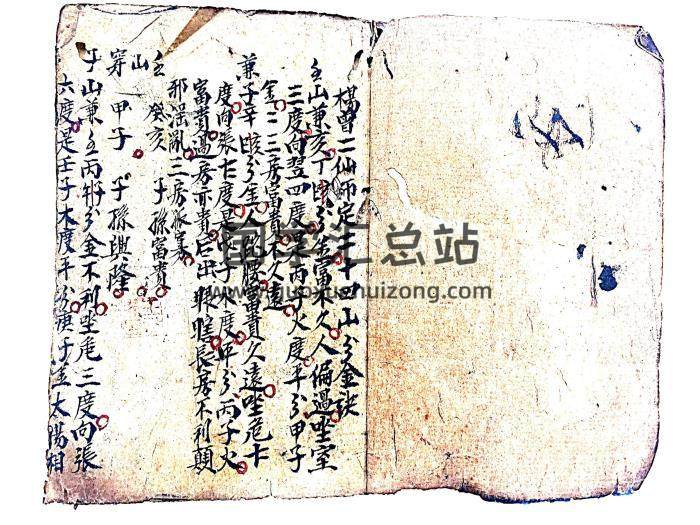 楊曾二仙師定 十四山分金訣
壬山兼亥丁 分金富不久人偏過坐室
三度向翌四度 丙子火度平分甲子
金二三房富貴不久遠
兼子辛 分金人 勝富貴久遠坐危七
度向張七度是 子 度平分丙子火
富貴過房亦貴后出 瞎長房不利顛
邪淫亂三房服毒
壬 癸亥 子孫富貴
山
穿 甲子 子孫興隆
子山兼壬丙 分金不利坐危三度向張
六度是壬子木度平分庚子 太陽相
国学汇总站
www.guoxuehuizong.com